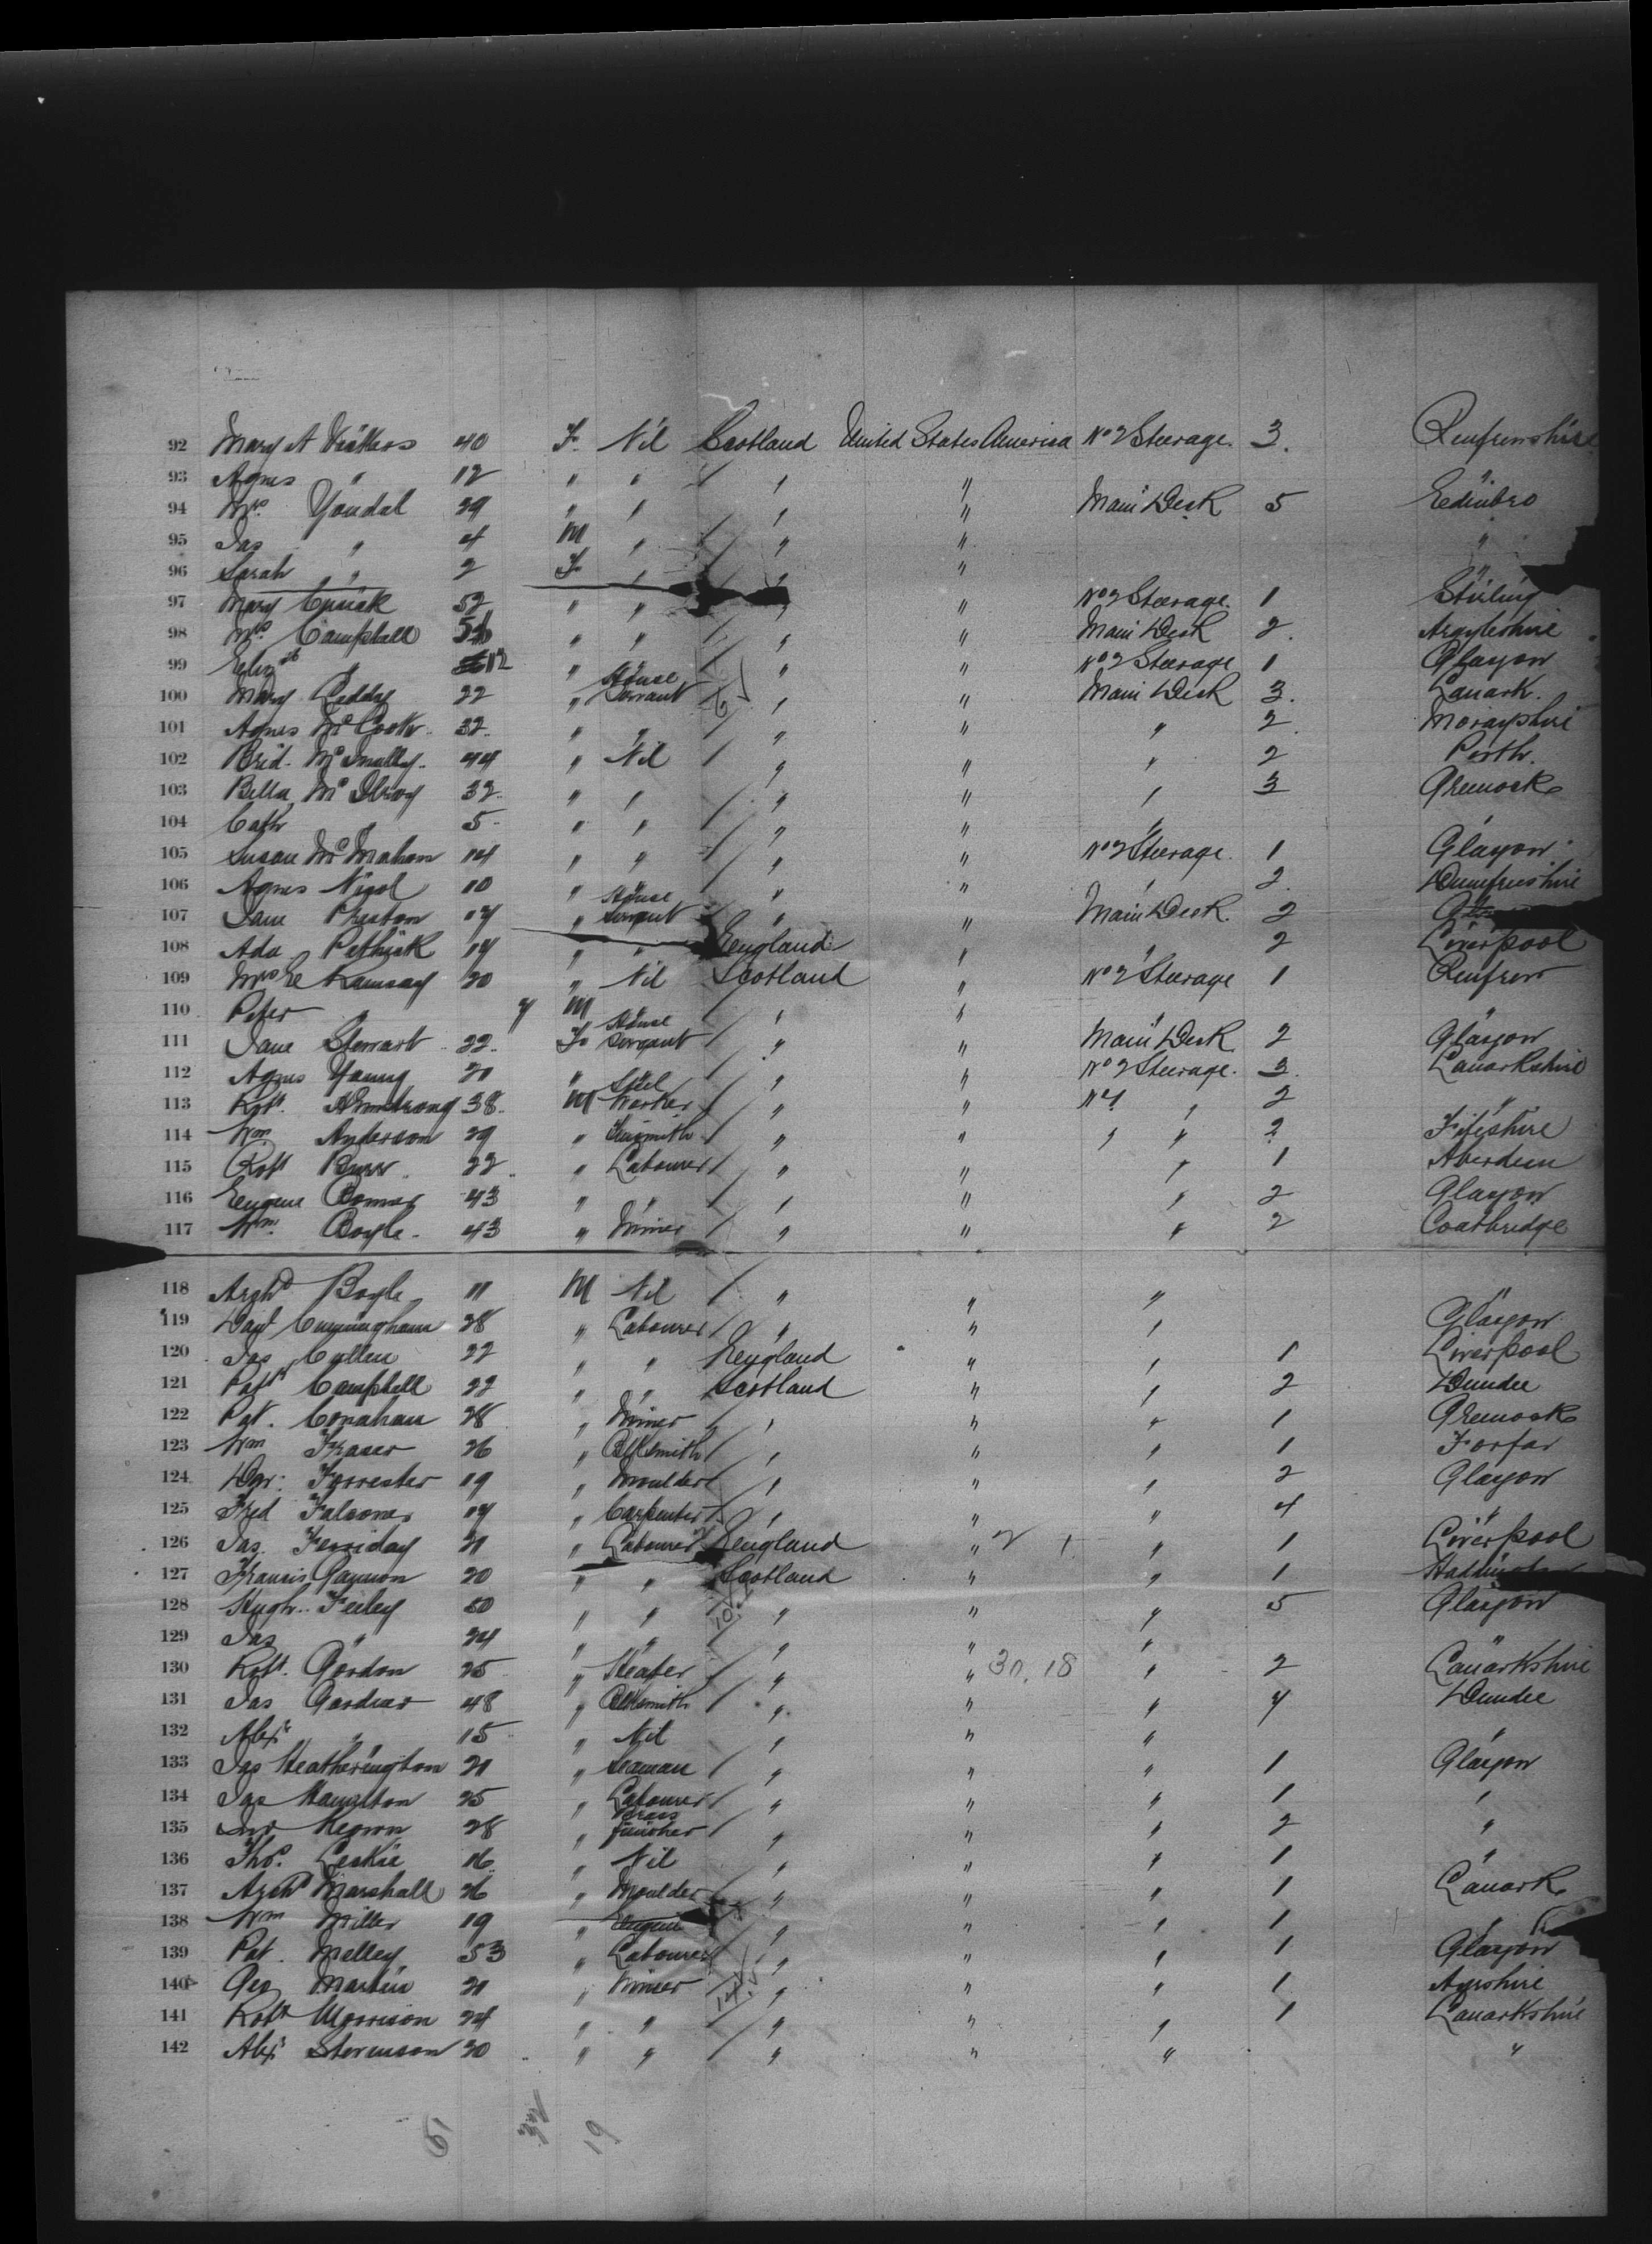 92 Mary A 40 F. Nil Scotland United States America No 2 Steerage. 3. Renfrewshire
93 Agnes " 12 " " " "
94 Mrs. Youdal 29 " " " " Main Deck 5 Edinbro
95 Jas " 4 M " " " "
96 Sarah " 2 F. " " " "
97 Mary Cusick 52 " " " " No 2 Steerage. 1 Stirling
98 Mrs. Campbell " " " " Main Deck 2. Argyleshire
99 Elizth " " " " " No 2 Steerage 1 Glasgow
100 Mary Leddy 22 " House Servant " " Main Deck 3. Lanark.
101 Agnes McCook 32 " " " " " 2. Morayshire
102 Brid. 44 " Nil " " " 2 Perth.
103 Bella McIlroy 32 " " " " " 3 Greenock
104 Cath " 5 " " " " "
105 Susan McMahon 14 " " " " No 2 Steerage. 1 Glasgow
106 Agnes Nicol 10 " " " " " 2. Dumfrieshire
107 Jane Preston 17 " House Servant " " Main Deck. 2
108 Ada Pethick 19 " " England " " 2 Liverpool
109 Mrs E Ramsay 20 " Nil Scotland " No 2 Steerage 1 Renfrew
110 Peter " M " " " " "
111 Jane Stewart 22. F. House Servant " " Main Deck 2 Glasgow
112 Agnes Young 20 " " " " No 2 Steerage. 3. Lanarkshire
113 Robt. Armstrong 38. M Steel Worker " " No 1 " 2 "
114 Wm. Anderson 29 " Tinsmith " " " " 2 Fifeshire
115 Robt Burr. 22 " Labourer " " " 1 Aberdeen
116 Eugene 43 " " " " " 2 Glasgow
117 Wm. Boyle. 43 " Miner " " " 2 Coatbridge
118 Archd Boyle 11 M Nil " " " "
119 Davd Cunningham 28 " Labourer " " " Glasgow
120 Jas Cullen 22 " " England " " 1 Liverpool
121 Patk Campbell 22 " " Scotland " " 2 Dundee
122 Pat. Conahan 28 " Miner " " " 1 Greenock
123 Wm Fraser 26 " Blksmith " " " 1 Forfar
124 Forrester 19 " Moulder " " " 2 Glasgow
125 Fred Falconer 17 " Carpenter " " " 4 "
126 Jas. 21 " Labourer England " " 1 Liverpool
127 Francis Gannon 20 " " Scotland " " 1
128 Hugh. Feeley 50 " " " " " 5 Glasgow
129 Jas " 24 " " " " "
130 Robt. Gordon 25 " Heater " " 30. 18 " 2 Lanarkshire
131 Jas Gardner 48 " Blksmith " " " 4 Dundee
132 Alexr " 15 " Nil " " " "
133 Jas Heatherington 21 " Seaman " " " 1 Glasgow
134 Jas 25 " Labourer " " " 1 "
135 Jno 28 " Brass finisher " " " 2 "
136 Thos. Leckie 16 " Nil " " " 1 "
137 Archd Marshall 26 " Moulder " " " 1 Lanark
138 Wm Miller 19 " " " " 1 "
139 Pat. Melley 53 " Labourer " " " 1 Glasgow
140 Geo Martin 21 " Miner " " " 1 Ayrshire
141 Robt Morrison 24 " " " " " 1 Lanarkshire
142 Alexr Stevenson 20 " " " " " "